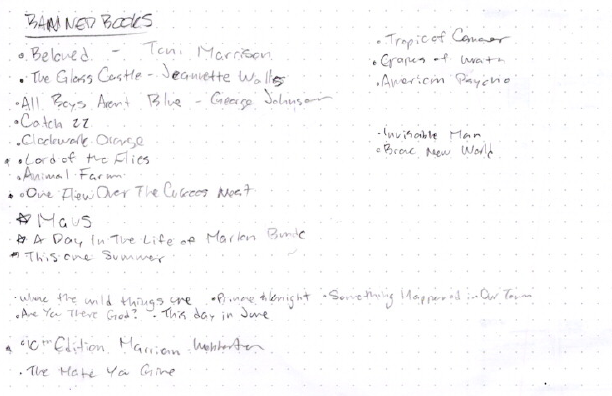 BANNED BOOKS
• Beloved - Toni Marrison
• The Glass Castle - Jeannette Walls
• All Boys Arent Blue - George Johnson
• Catch 22
• Clockwork Orange
• Lord of the Flies
• Animal Farm
• One Flew Over The Cuckoos Nest
☆ Maus
☆ A Day In The Life of Marlon Bundo
This one Summer
• where the wild things are • Prince & Knight • Something Happened in Our Town
• Are You There God? • This day in June
• 10th Edition Marriam Webster
• The Hate You Give
• Tropic of Cancer
• Grapes of Wrath
• American Psycho
• Invisable Man
• Brave New World